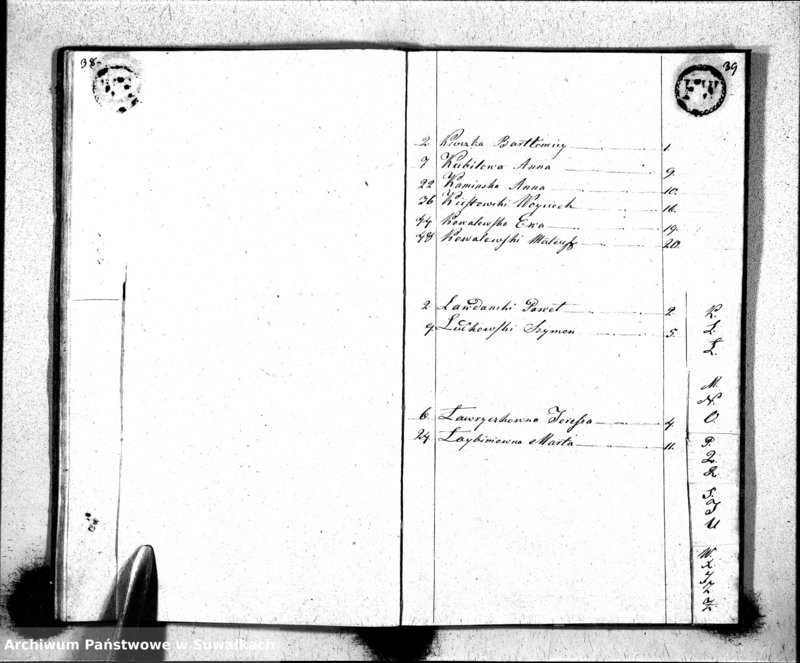 38
39
2 Kluszka Bartłomiey 1.
7 Kubilowa Anna 9.
22 Kaminska Anna 10.
36 Woyciech 16.
44 Kowalewska Ewa 19.
48 Kowalewski Mateusz 20.
2 Lawdanski Paweł 2.
9 Luckowski Szymon 5.
6. Ławryszkowna Teressa 4.
24 Łaybiniowna Marta 11.
K.
L.
Ł.
M.
N.
O.
P.
Q.
R.
S.
T.
U
W.
X.
Y.
Z.
Ż.
Archiwum Państwowe w Suwałkach